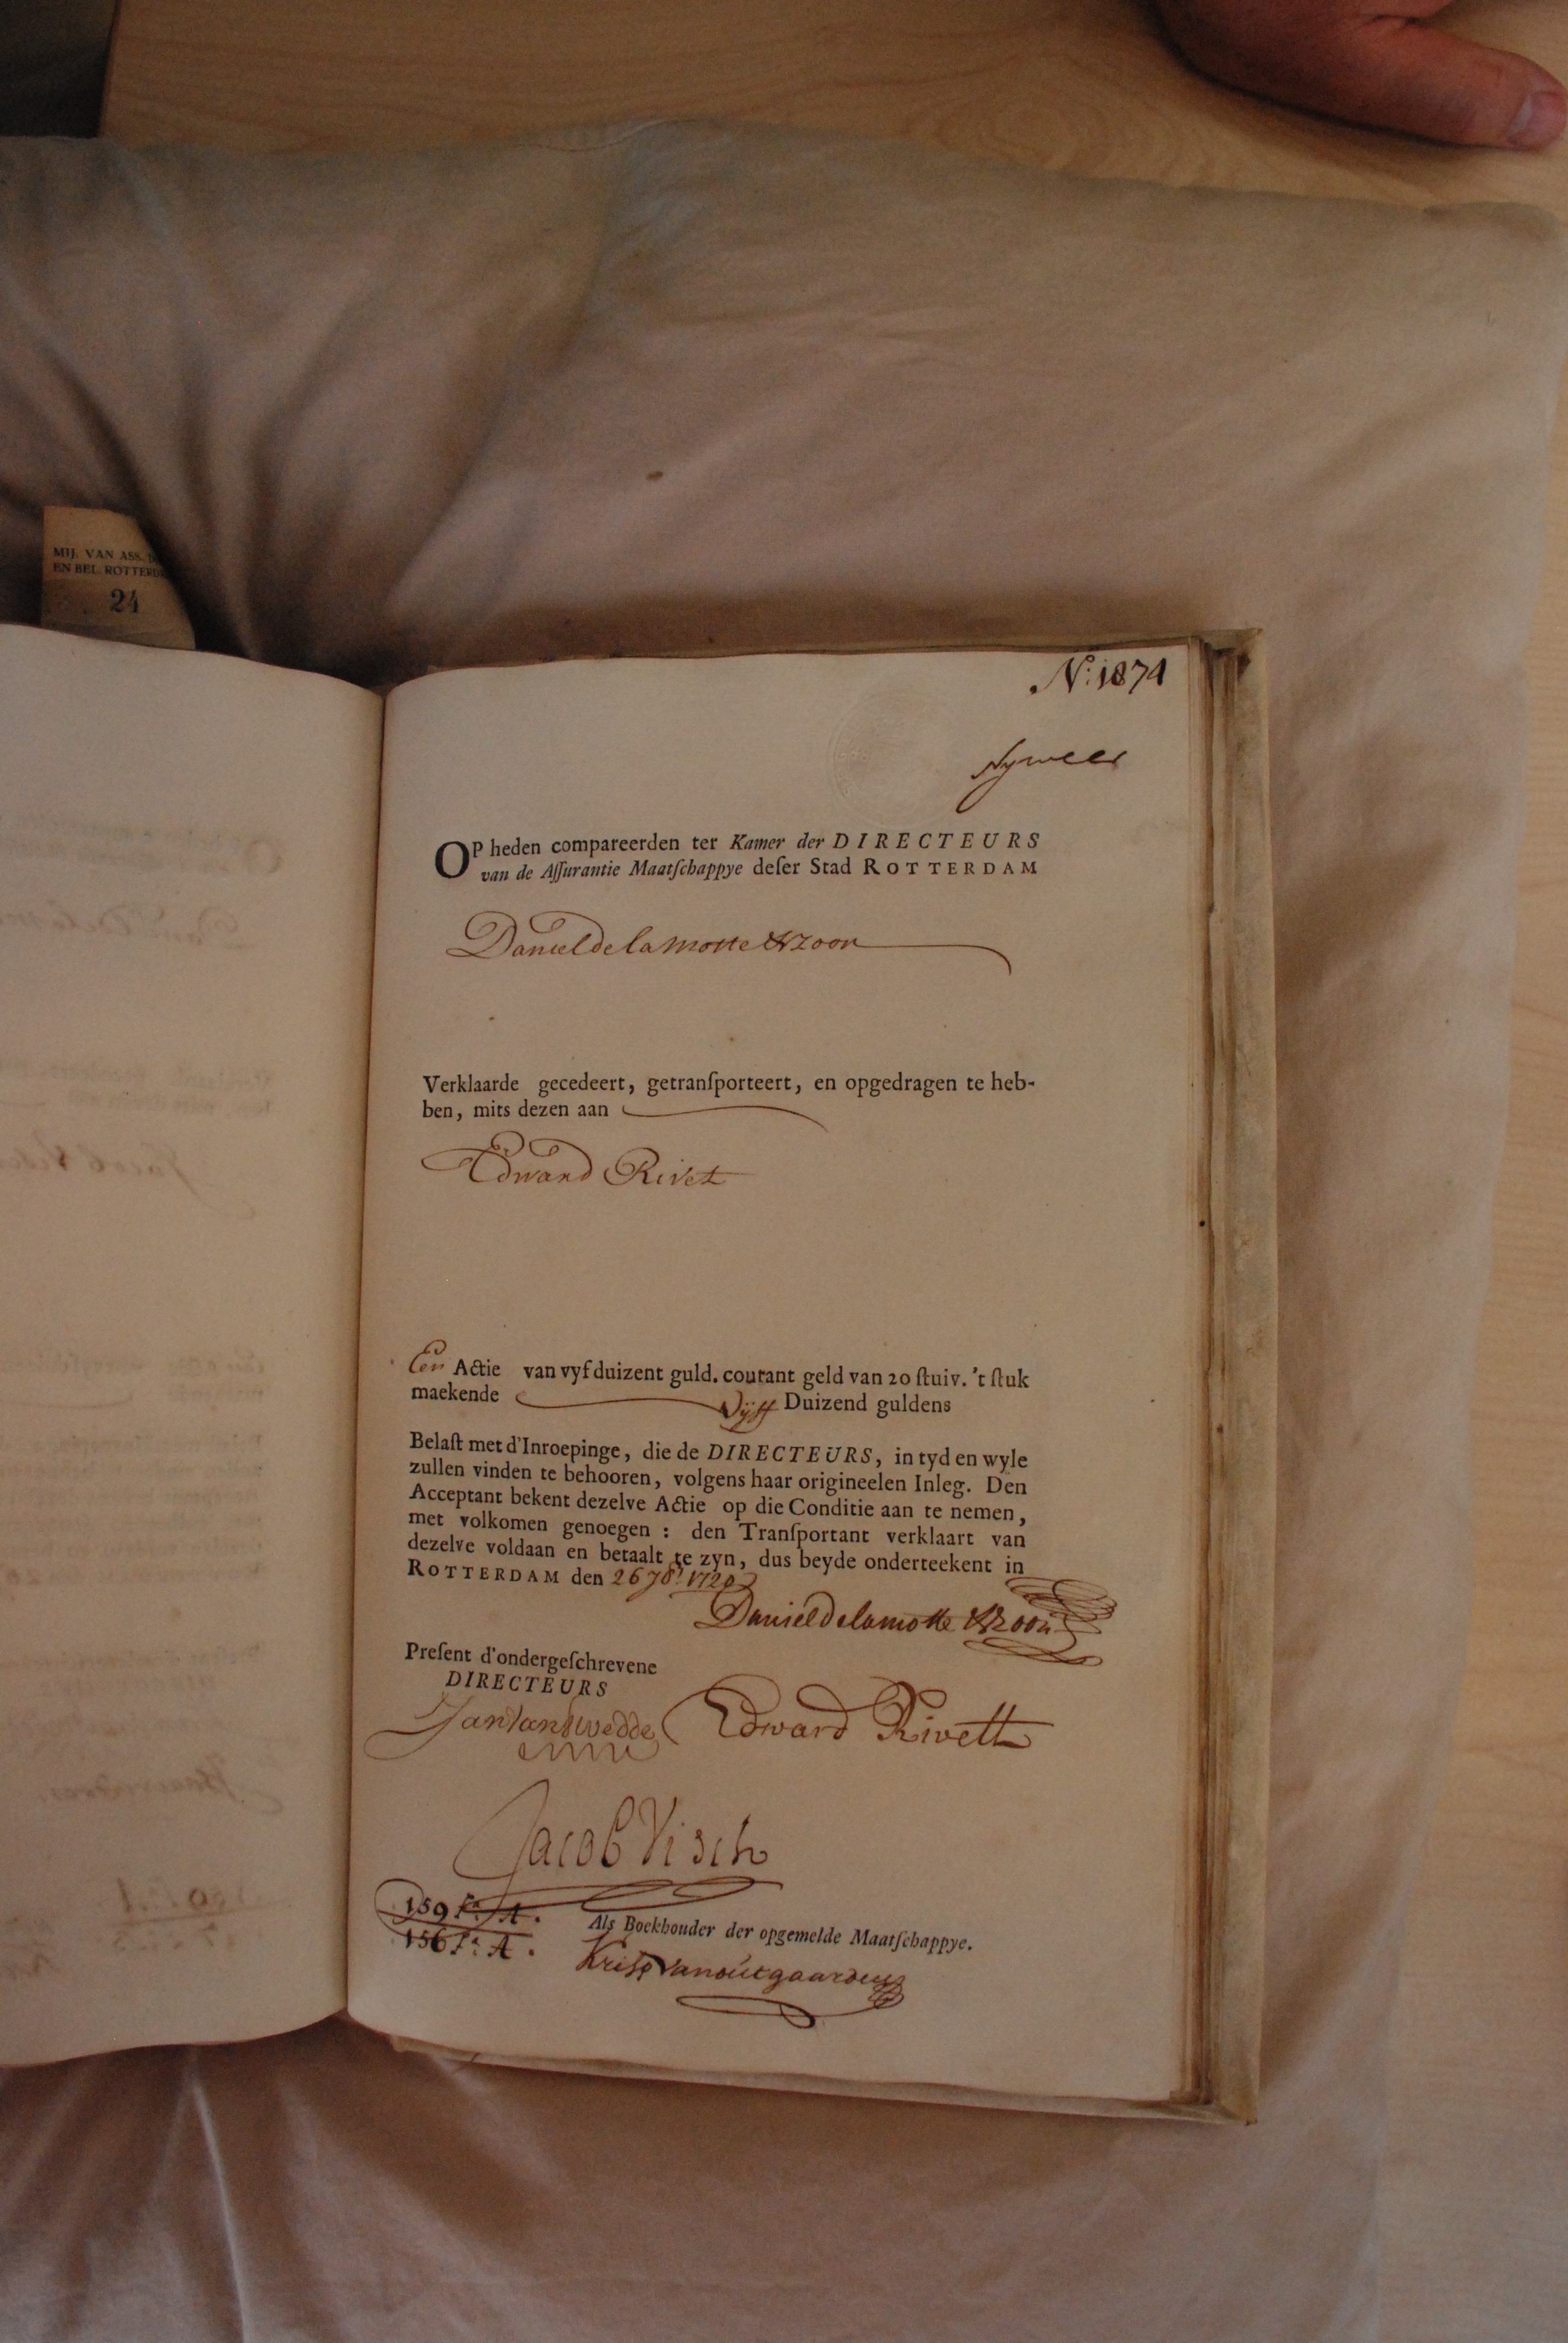 MIJ. VAN ASS.
EN BEL. ROTTERD
24
N: 1874
OP heden compareerden ter Kamer der DIRECTEURS
van de Aſſurantie Maatſchappye deſer Stad ROTTERDAM
Daniel de la Motte & Zoon
Verklaarde gecedeert, getranſporteert, en opgedragen te heb-
ben, mits dezen aan
Edward Rivet
Een Actie van vyf duizent guld. courant geld van 20 ſtuiv. 't ſtuk
maekende Vÿff Duizend guldens
Belaſt met d'Inroepinge, die de DIRECTEURS, in tyd en wyle
zullen vinden te behooren, volgens haar origineelen Inleg. Den
Acceptant bekent dezelve Actie op die Conditie aan te nemen,
met volkomen genoegen : den Tranſportant verklaart van
dezelve voldaan en betaalt te zyn, dus beyde onderteekent in
ROTTERDAM den 26 7br: 1720
Daniel de la motte & Zoon
Preſent d'ondergeſchrevene
DIRECTEURS
Jan van Swedde
Edward Rivett
Jacob Visch
159 Fo: A.
156 Fo: A.
Als Boekhouder der opgemelde Maatſchappye.
Krisp van outgaarden